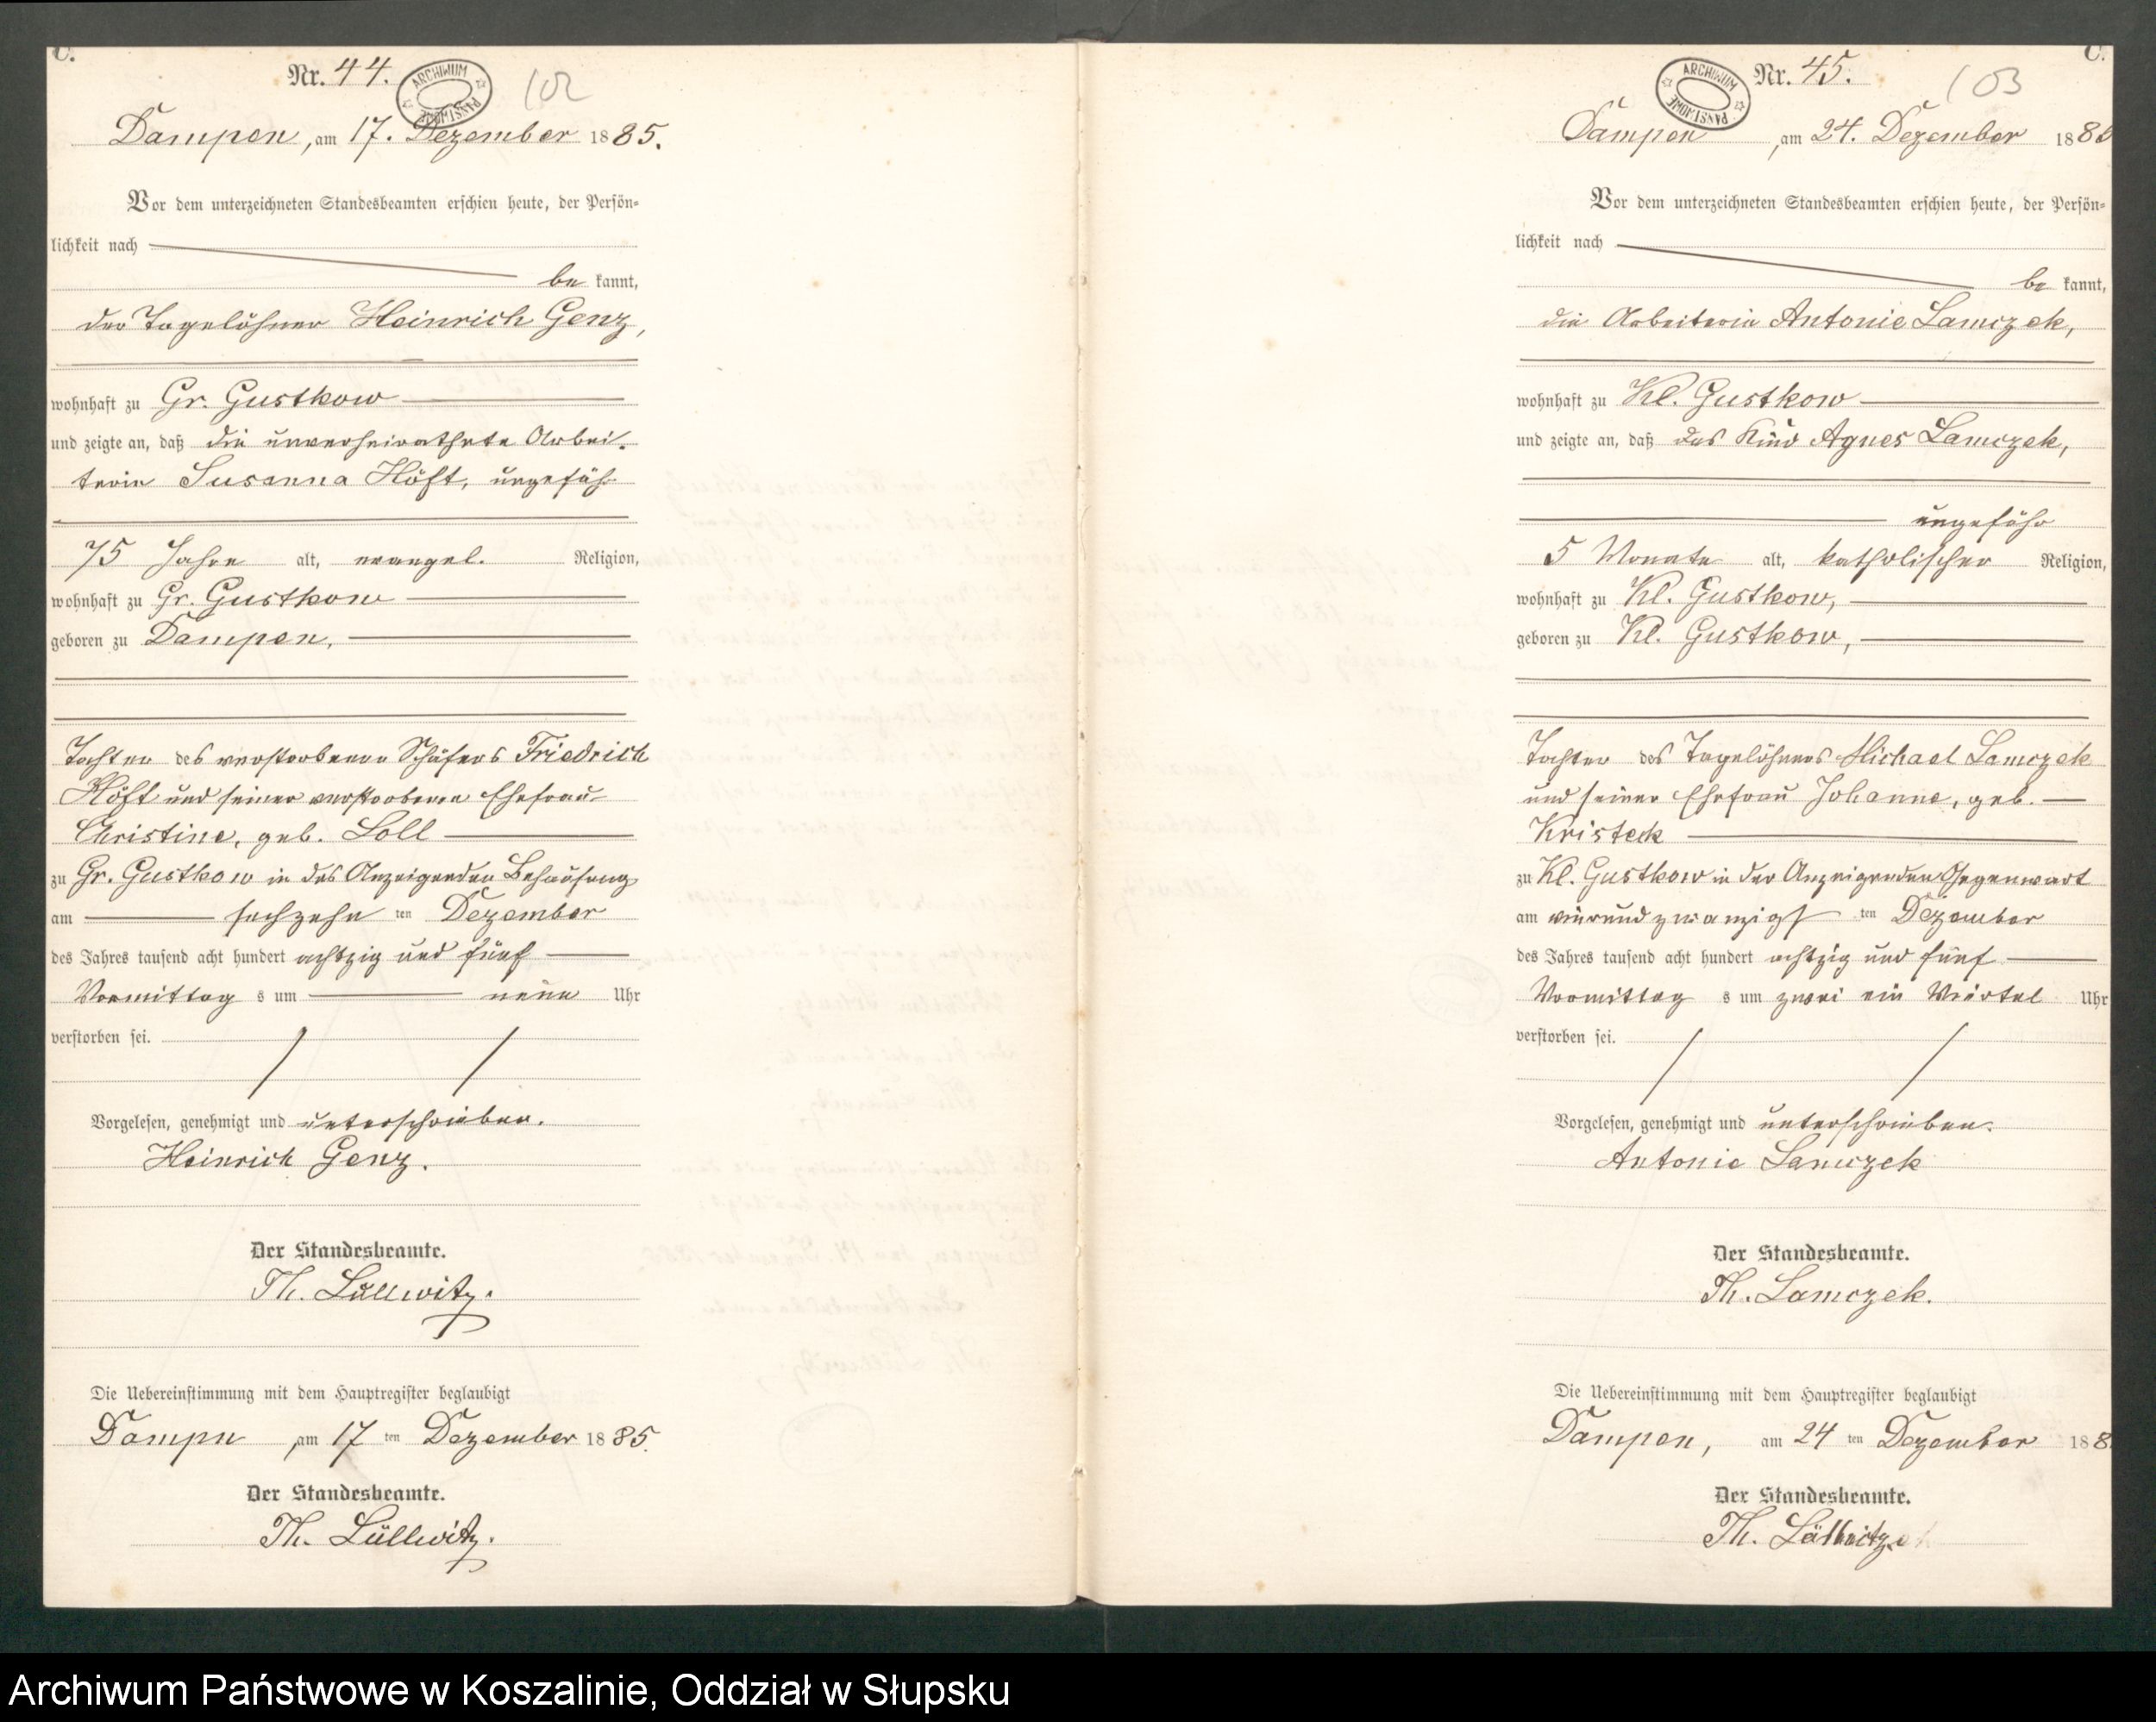 C.
Nr. 44.
ARCHIWUM PAŃSTWOWE
102
Dampen, am 17. Dezember 1885.
Vor dem unterzeichneten Standesbeamten erschien heute, der Persön-
lichkeit nach
be kannt,
der Tagelöhner Heinrich Genz,
wohnhaft zu Gr. Gustkow
und zeigte an, daß die unverheirathete Arbei-
terin Susanna Höft, ungefähr
75 Jahre alt, evangel. Religion,
wohnhaft zu Gr. Gustkow
geboren zu Dampen,
Tochter des verstorbenen Schäfers Friedrich
Höft und seiner verstorbenen Ehefrau
Christine, geb. Loll
zu Gr. Gustkow in des Anzeigenden Behausung
am sechzehn ten Dezember
des Jahres tausend acht hundert achtzig und fünf
Vormittag s um neun Uhr
verstorben sei.
Vorgelesen, genehmigt und unterschrieben.
Heinrich Genz.
Der Standesbeamte.
Th. Lüllwitz.
Die Uebereinstimmung mit dem Hauptregister beglaubigt
Dampen, am 17 ten Dezember 1885.
Der Standesbeamte.
Th. Lüllwitz.
C.
Nr. 45.
ARCHIWUM PAŃSTWOWE
103
Dampen, am 24. Dezember 188
Vor dem unterzeichneten Standesbeamten erschien heute, der Persön-
lichkeit nach
be kannt,
die Arbeiterin Antonie Lamczek,
wohnhaft zu Kl. Gustkow
und zeigte an, daß das Kind Agnes Lamczek,
ungefähr
5 Monate alt, katholischer Religion,
wohnhaft zu Kl. Gustkow,
geboren zu Kl. Gustkow,
Tochter des Tagelöhners Michael Lamczek
und seiner Ehefrau Johanne, geb.
Kristeck
zu Kl. Gustkow in der Anzeigenden Gegenwart
am vierundzwanzigst ten Dezember
des Jahres tausend acht hundert achtzig und fünf
Vormittag s um zwei ein Viertel Uhr
verstorben sei.
Vorgelesen, genehmigt und unterschrieben.
Antonie Lamczek
Der Standesbeamte.
Th. Lamczek.
Die Uebereinstimmung mit dem Hauptregister beglaubigt
Dampen, am 24 ten Dezember 188
Der Standesbeamte.
Th. Lüllwitz
Archiwum Państwowe w Koszalinie, Oddział w Słupsku